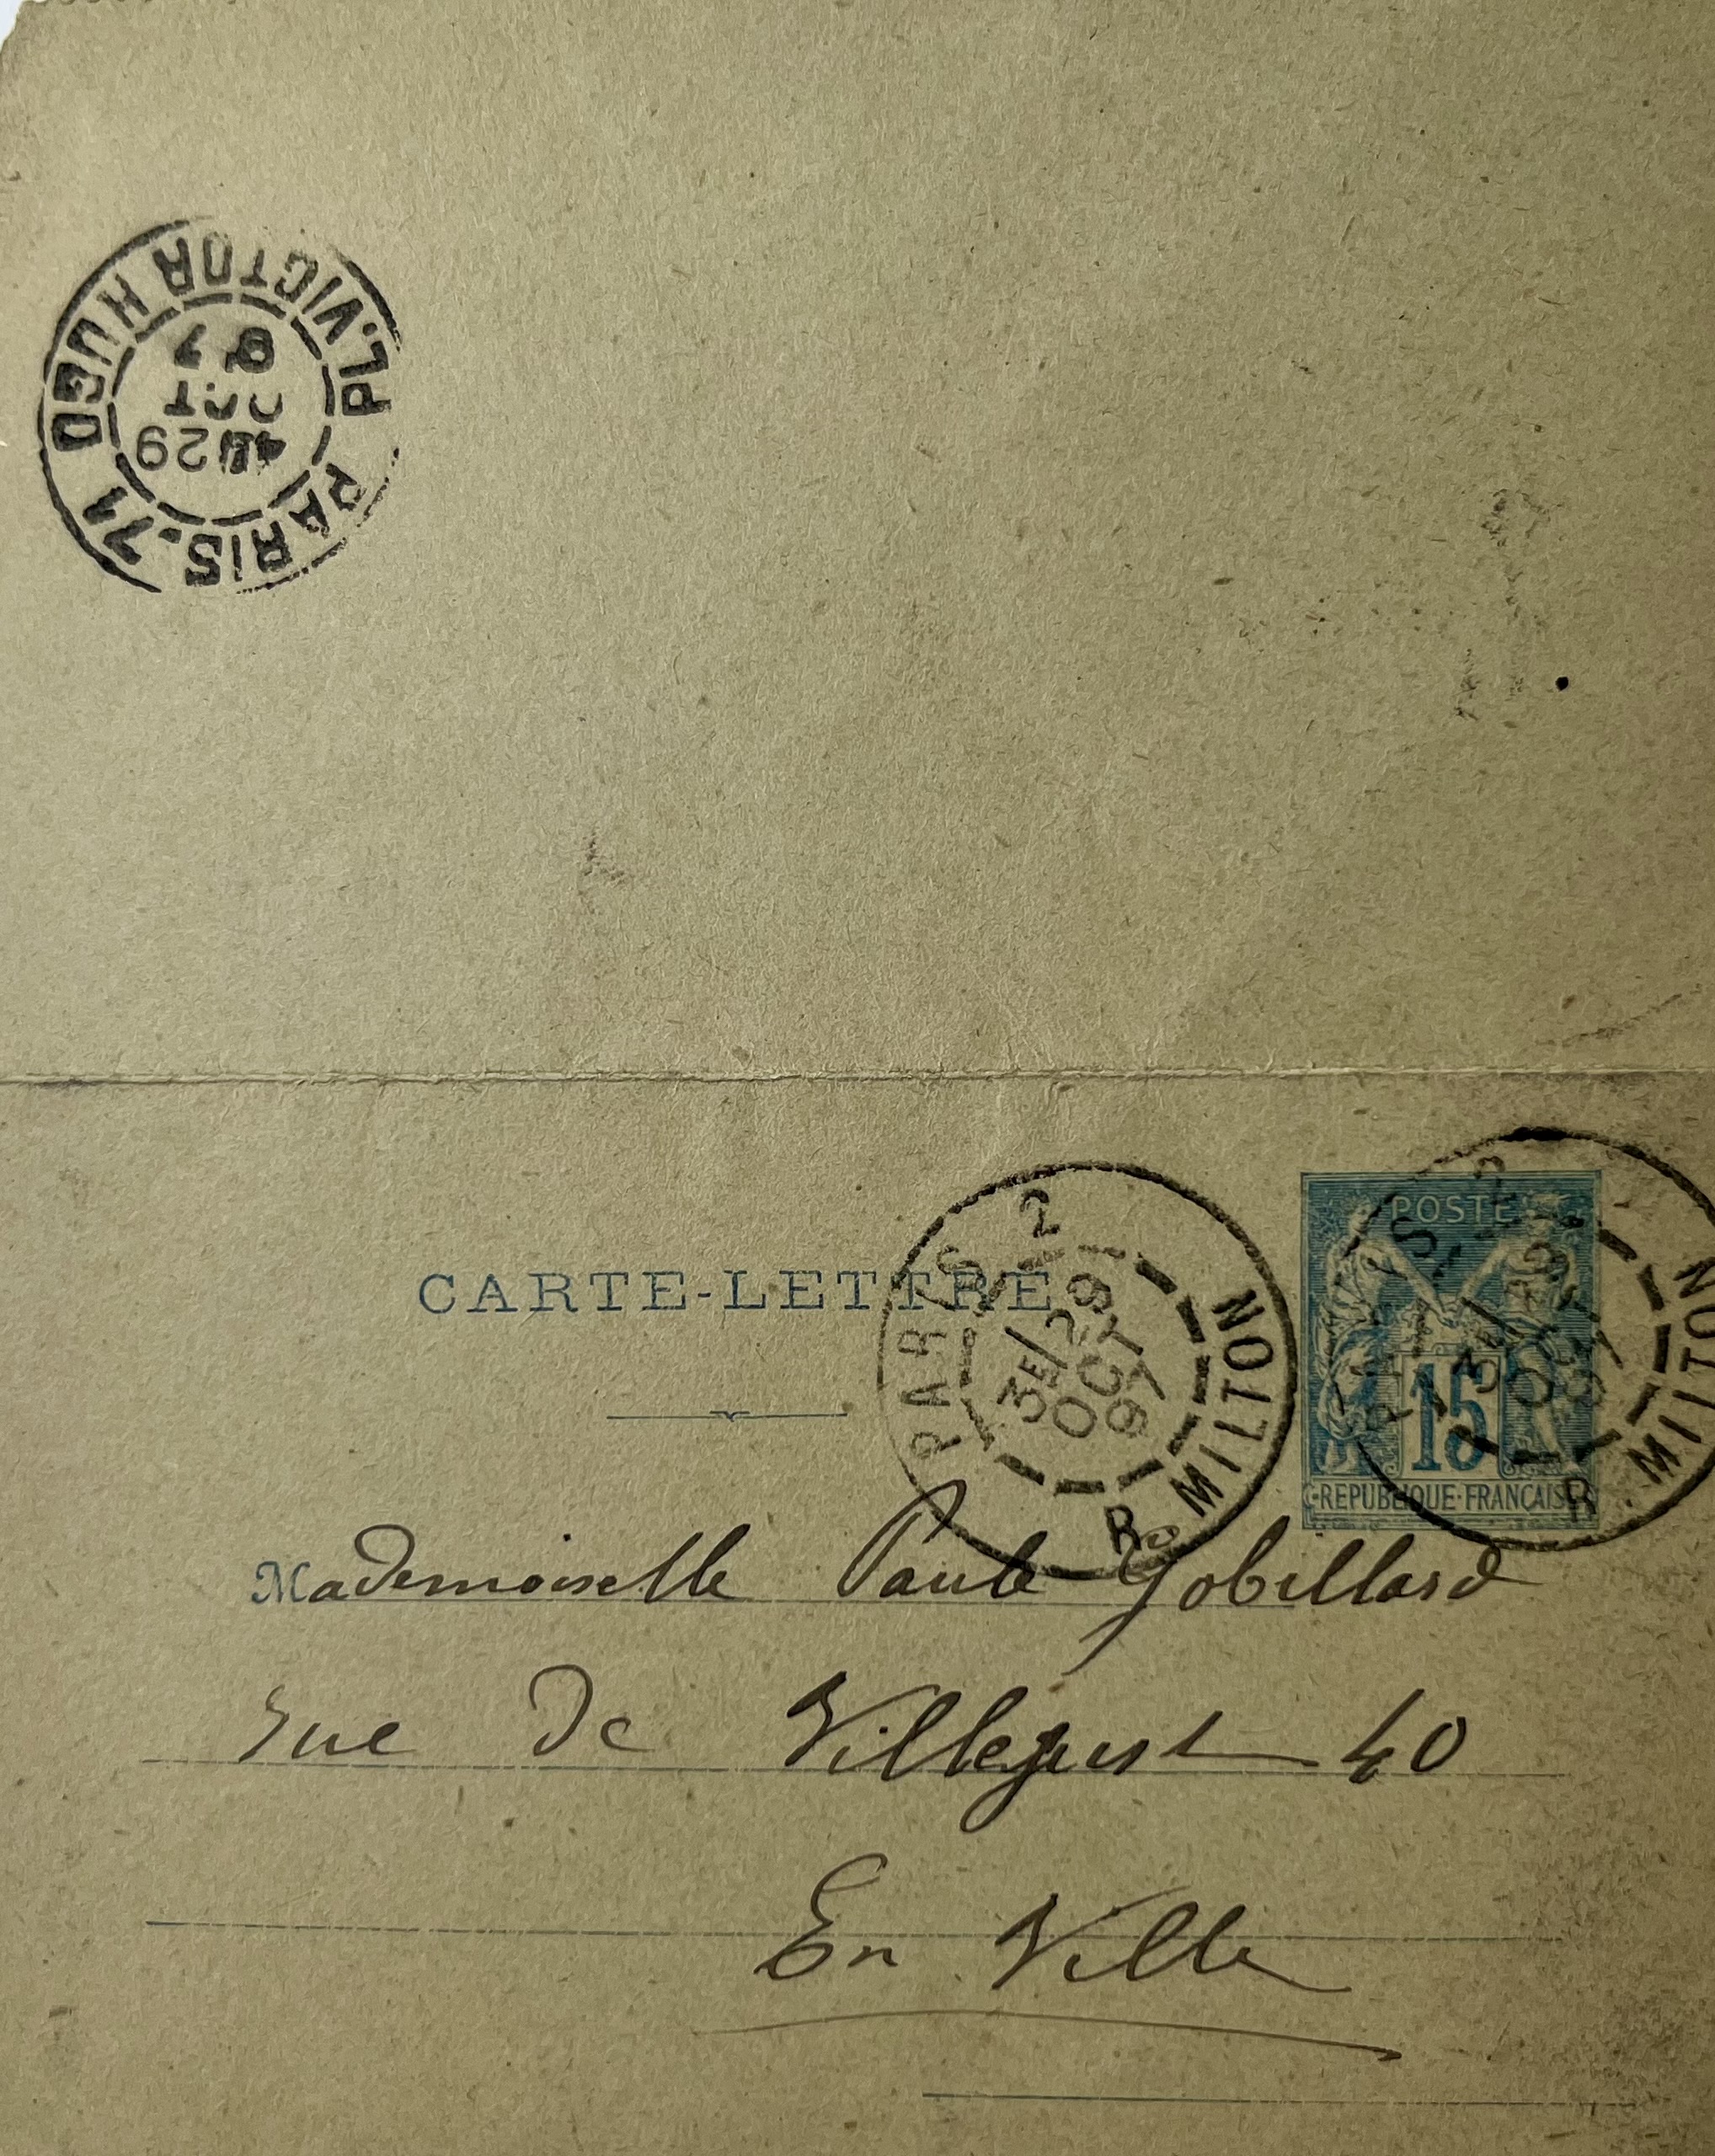 PARIS.71
PL.VICTOR HUGO
4E 29
OCT
97
CARTE-LETTRE
PARIS 2
R. MILTON
3E/29
OCT
97
POSTE
15
REPUBLIQUE FRANÇAISE
S 2
R. MILTON
3E/29
OCT
97
Mademoiselle Paule Gobillard
rue de Villejust 40
En Ville